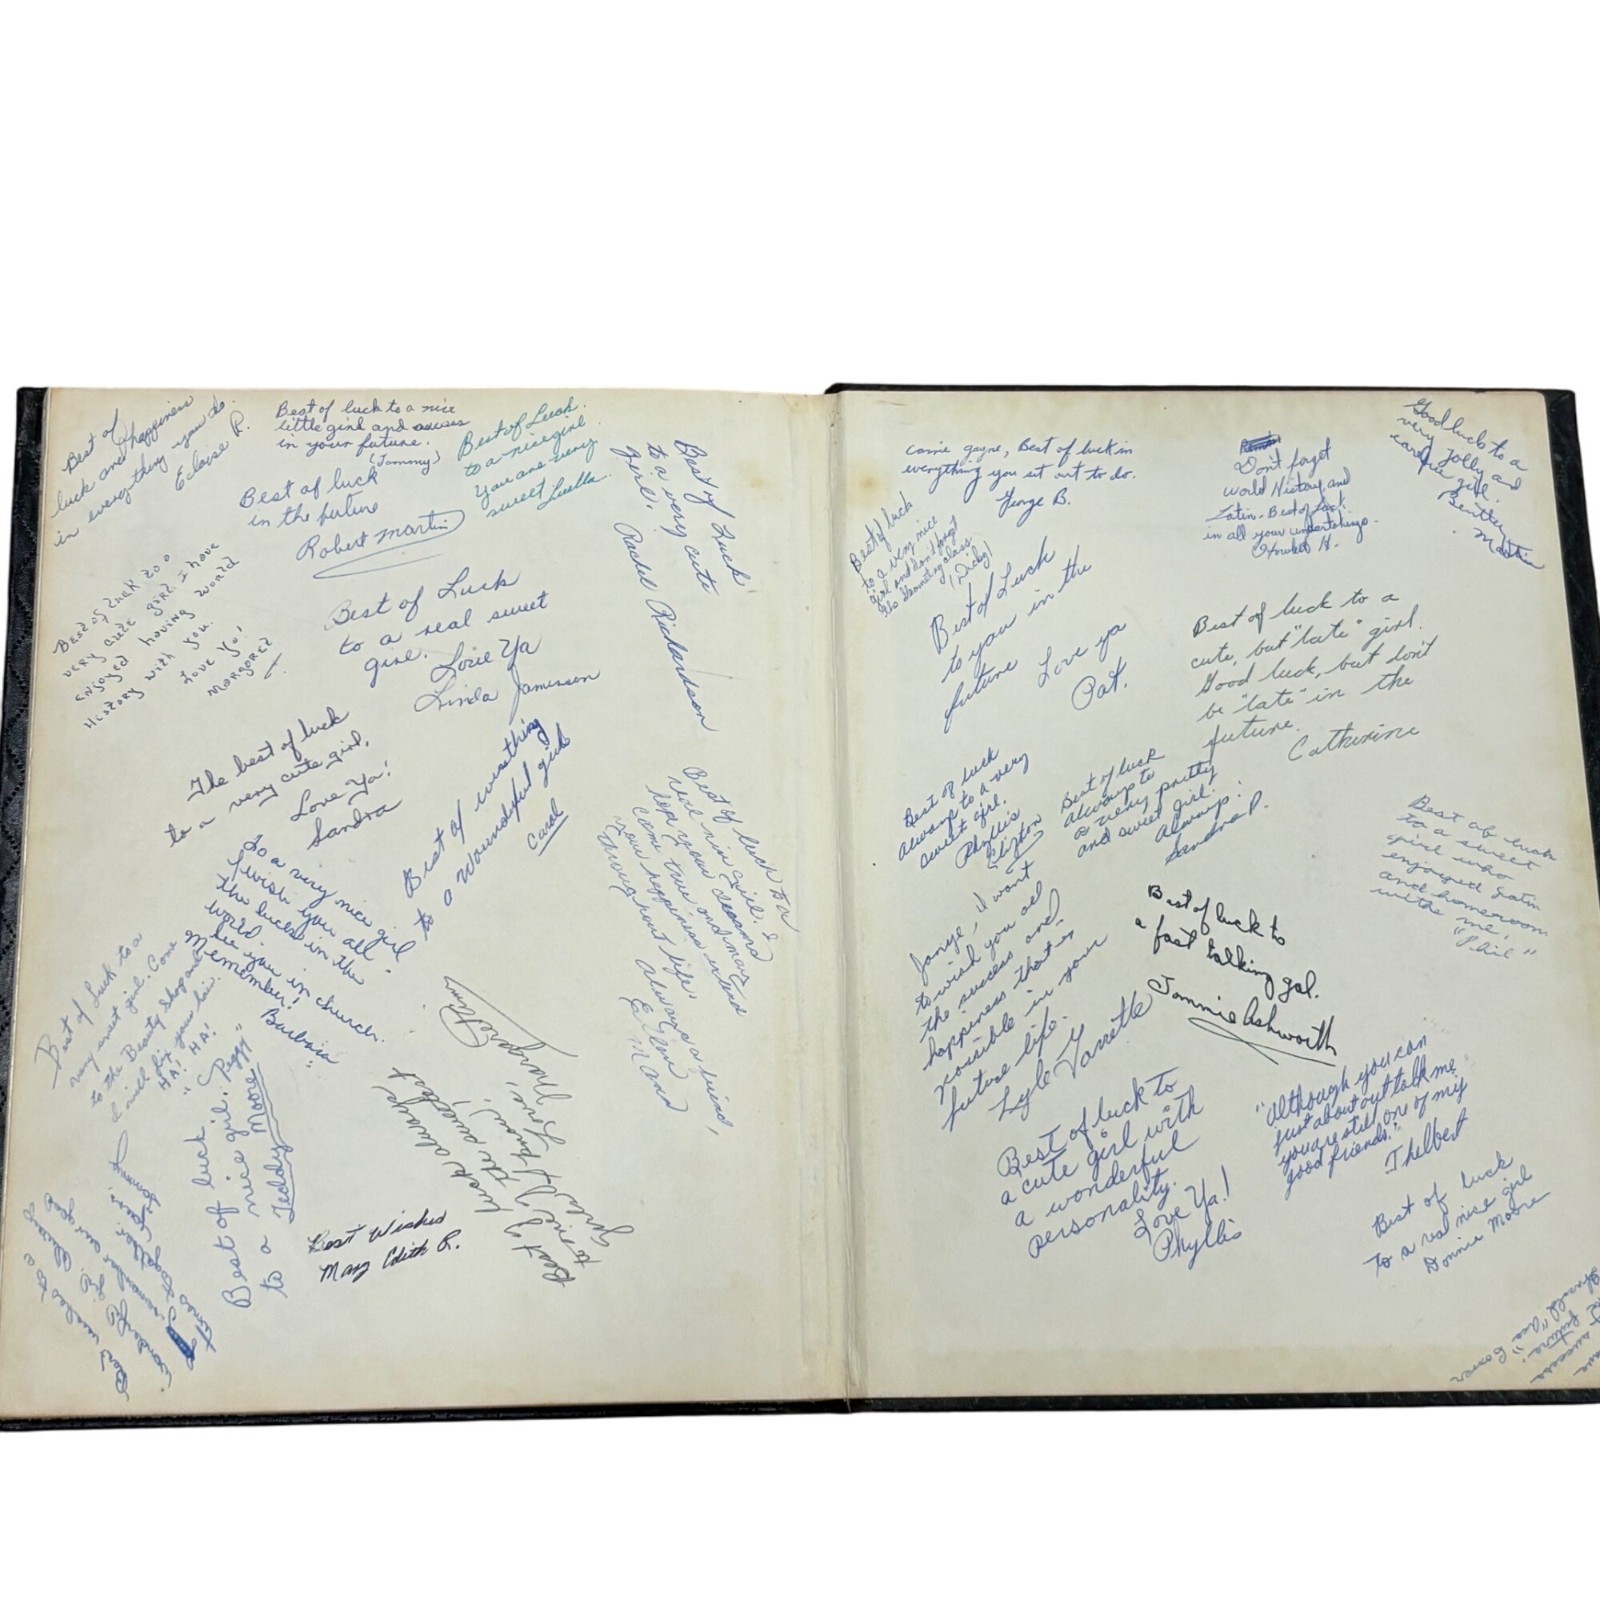 Best of
luck and happiness
in everything you do.
Eloise R.
Best of luck to a nice
little girl and
in your future.
(Tommy)
Best of Luck
to a nice girl.
You are very
sweet Luella.
Best of luck
in the future
Robert Martin
Best of Luck
to a very cute
girl.
Rachel Richardson
Best of luck to a
very cute girl. I have
enjoyed having world
History with you.
Love Ya!
Margaret
Best of Luck
to a real sweet
girl.
Love Ya
Linda Jamerson
The best of luck
to a very cute girl,
Love Ya!
Sandra
Best of wishing
to a Woundyful girl
Carol
Best of luck to a
real nice girl. I
hope your dreams
come true and may
you happiness
throughout life.
Always a friend,
Ellen
Mann
To a very nice girl
I wish you all
the luck in the
world.
See you in church.
Remember!
Barbara
Best of Luck to a
very sweet girl. Come
to the Beauty Shop and
I will fix your hair.
HA! HA!
"Peggy"
Best of luck
to a nice girl.
Teddy Moore
Best of luck always
to one of the sweetest
girls I know!
Love,
Margaret
Best Wishes
Mary Edith R.
Best wishes to a
Carrie Gayne, Best of luck in
everything you set out to do.
George B.
Don't forget
World History and
Latin. Best of luck
in all your undertakings.
H.
Good luck to a
very jolly and
carefree girl.
Martin
Best of luck
to a very nice
girl and don't forget
Geometry class.
(Dicky)
Best of Luck
to you in the
future
Love ya
Pat.
Best of luck to a
cute, but "late" girl.
Good luck, but don't
be "late" in the
future.
Catherine
Best of luck
always to a very
sweet girl.
Phyllis
Best of luck
always to
a very pretty
and sweet girl.
Always:
Sandra P.
Best of luck
to a sweet
girl who
enjoyed Latin
and homeroom
with me,
"Phil"
I want
to wish you all
the success and
happiness that is
possible in your
future life.
Lyle Varrette
Best of luck to
a fast talking gal.
Jimmie Ashworth
"Although you can
just about out talk me
you are still one of my
good friends."
Thelbert
Best of luck to
a cute girl with
a wonderful
personality.
Love Ya!
Phyllis
Best of luck
to a real nice girl
Donnie Moore